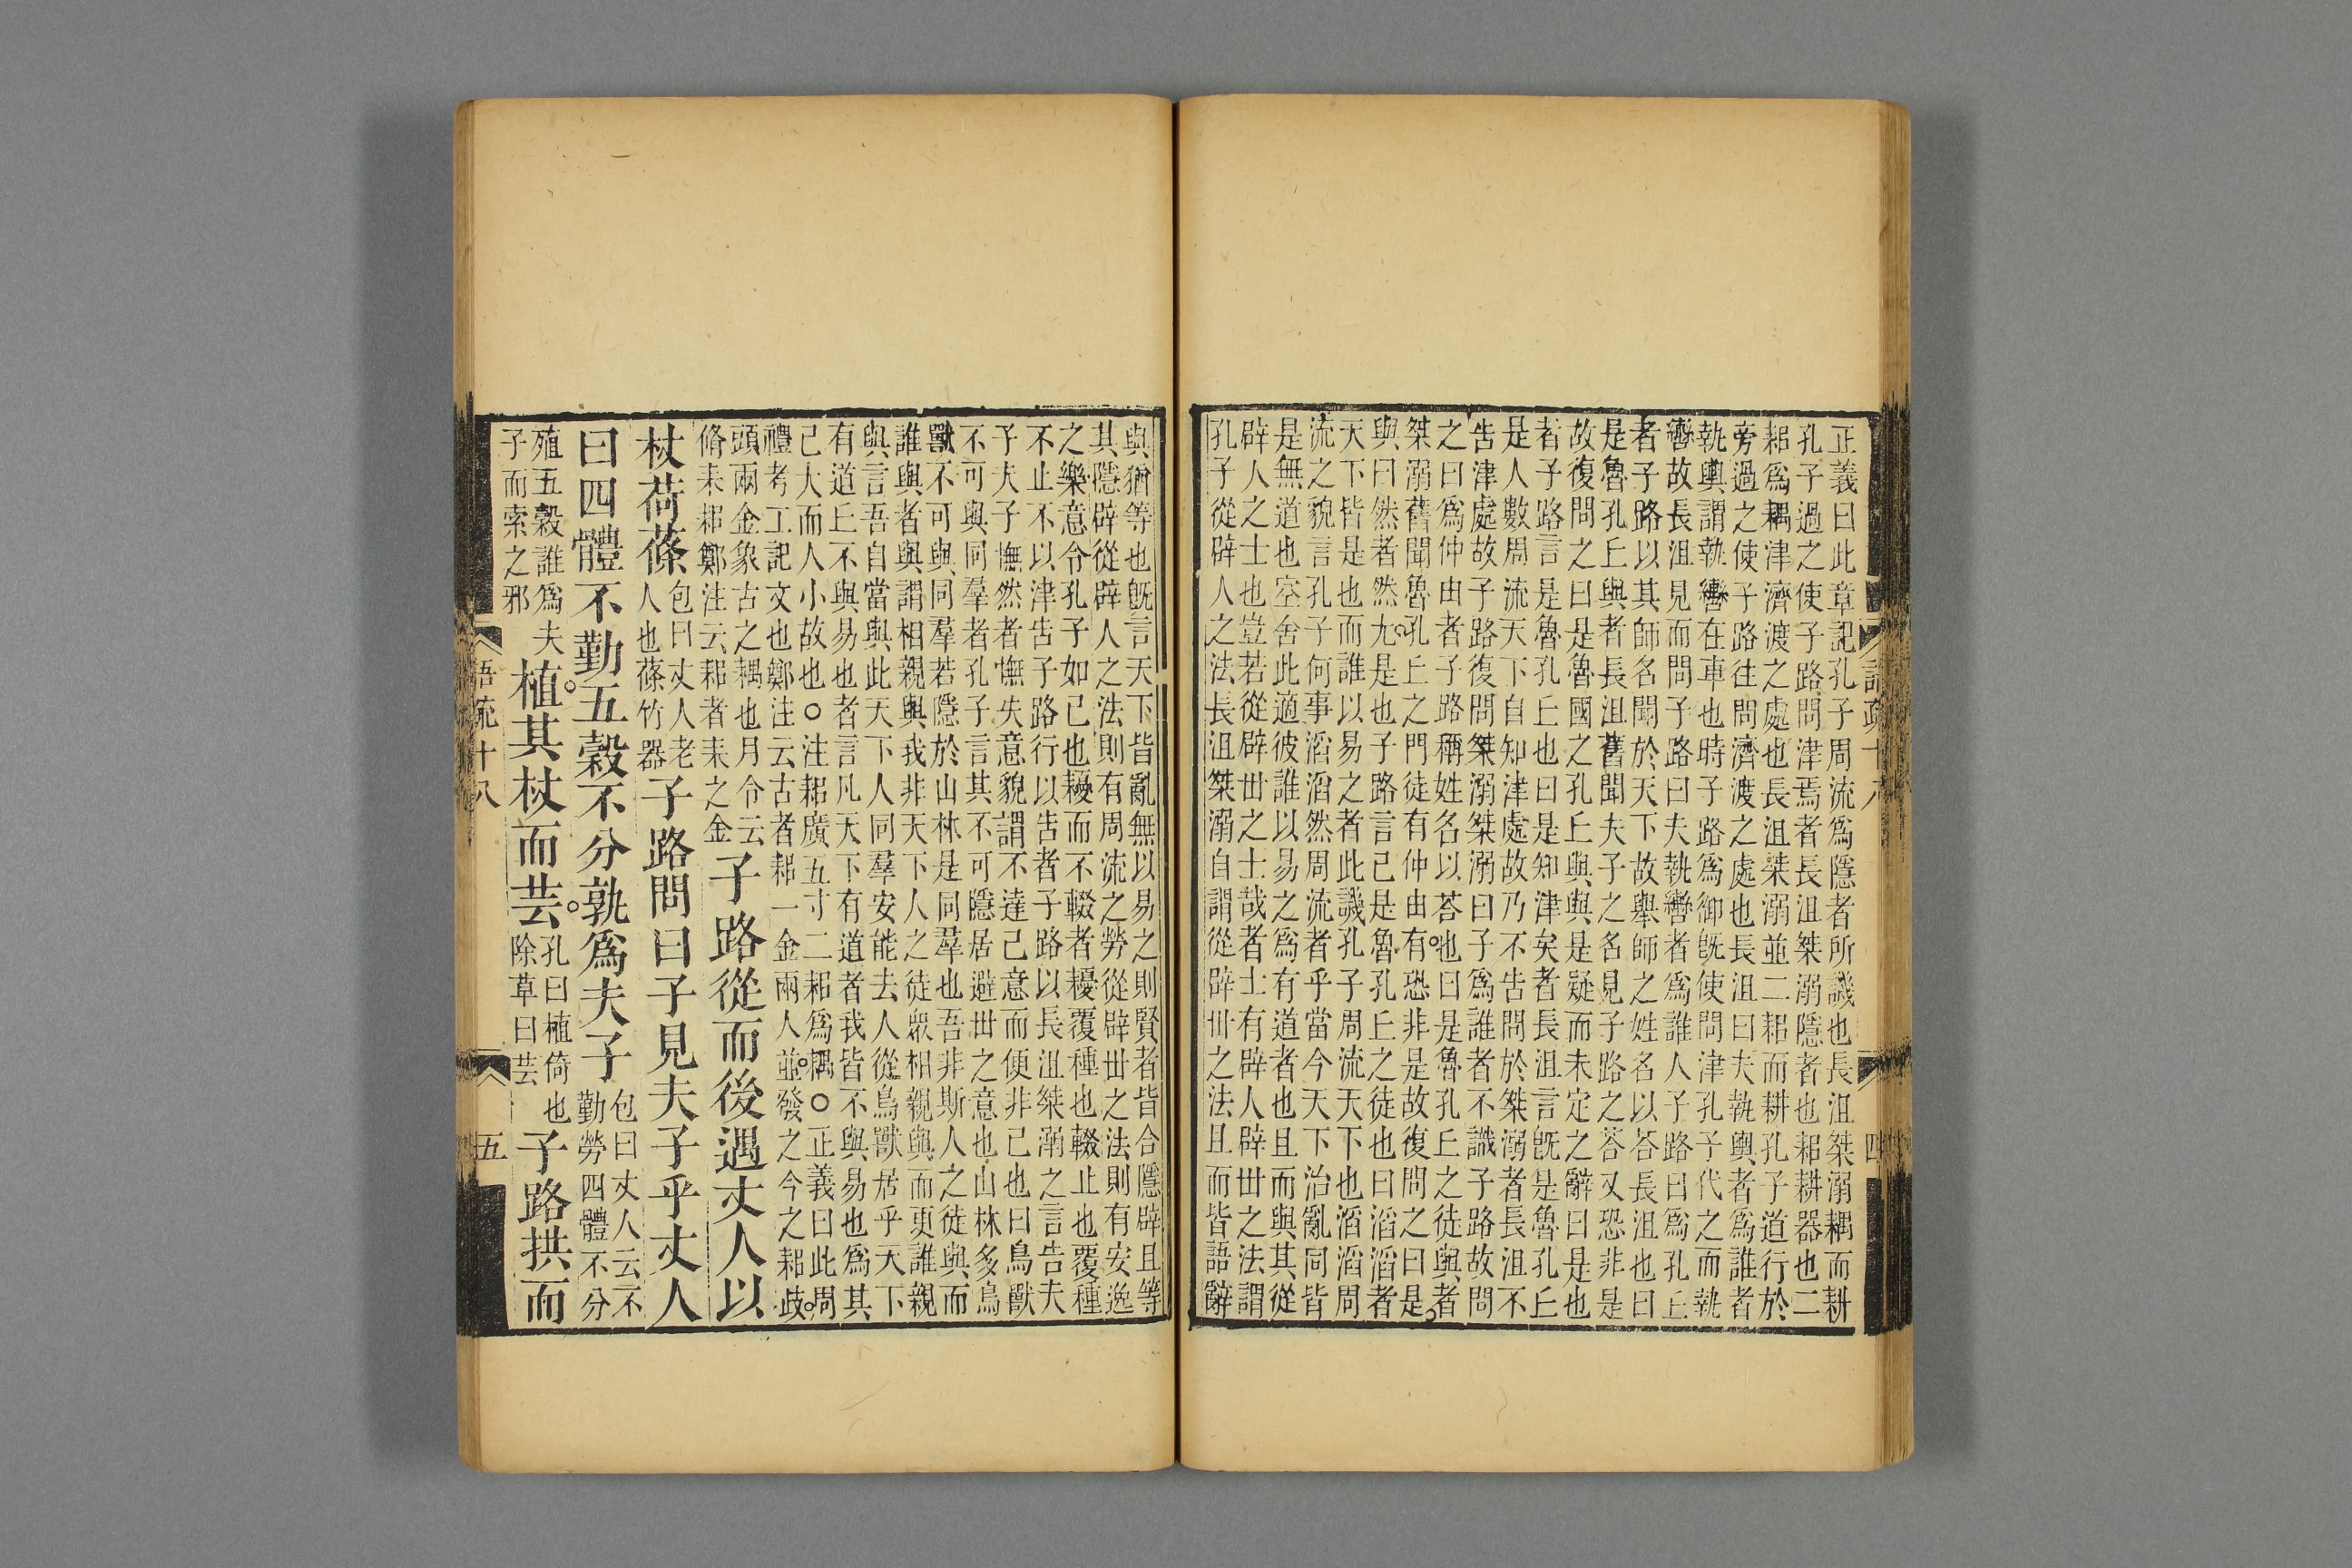 正義曰此章記孔子周流爲隱者所譏也長沮桀溺耦而耕
孔子過之使子路問津焉者長沮桀溺隱者也耜耕器也二
耜爲耦津濟渡之處也長沮桀溺並二耜而耕孔子道行於
旁過之使子路往問濟渡之處也長沮曰夫執輿者爲誰者
執輿謂執轡在車也時子路爲御旣使問津孔子代之而執
轡故長沮見而問子路曰夫執轡者爲誰人子路曰爲孔丘
者子路以其師名聞於天下故舉師之姓名以荅長沮也曰
是魯孔丘與者長沮舊聞夫子之名見子路之荅又恐非是
故復問之曰是魯國之孔丘與與是疑而未定之辭曰是也
者子路言是魯孔丘也曰是知津矣者長沮言旣是魯孔丘
是人數周流天下自知津處故乃不告問於桀溺者長沮不
告津處故子路復問桀溺桀溺曰子爲誰者不識子路故問
之曰爲仲由者子路稱姓名以荅也曰是魯孔丘之徒與者
桀溺舊聞魯孔丘之門徒有仲由有恐非是故復問之曰是
與曰然者然尤是也子路言己是魯孔丘之徒也曰滔滔者
天下皆是也而誰以易之者此譏孔子周流天下也滔滔周
流之貌言孔子何事滔滔然周流者乎當今天下治亂同皆
是無道也空舍此適彼誰以易之爲有道者也且而與其從
辟人之士也豈若從辟世之士哉者士有辟人辟世之法謂
孔子從辟人之法長沮桀溺自謂從辟世之法且而皆語辭
與猶等也旣言天下皆亂無以易之則賢者皆合隱辟且等
其隱辟從辟人之法則有周流之勞從辟世之法則有安逸
之樂意令孔子如己也耰而不輟者耰覆種也輟止也覆種
不止不以津告子路行以告者子路以長沮桀溺之言告夫
子夫子憮然者憮失意貌謂不達己意而便非己也曰鳥獸
不可與同羣者孔子言其不可隱居避世之意也山林多鳥
獸不可與同羣若隱於山林是同羣也吾非斯人之徒與而
誰與者與謂相親與我非天下人之徒眾相親與而更誰親
與言吾自當與此天下人同羣安能去人從鳥獸居乎天下
有道丘不與易也者言凡天下有道者我皆不與易也爲其
己大而人小故也○注耜廣五寸二耜爲耦○正義曰此周
禮考工記文也鄭注云古者耜一金兩人並發之今之耜歧
頭兩金象古之耦也月令云
脩耒耜鄭注云耜者耒之金
子路從而後遇丈人以
杖荷蓧
包曰丈人老
人也蓧竹器
子路問曰子見夫子乎丈人
曰四體不勤五穀不分孰爲夫子
包曰丈人云不
勤勞四體不分
殖五穀誰爲夫
子而索之邪
植其杖而芸
孔曰植倚也
除草曰芸
子路拱而
語疏十八
五